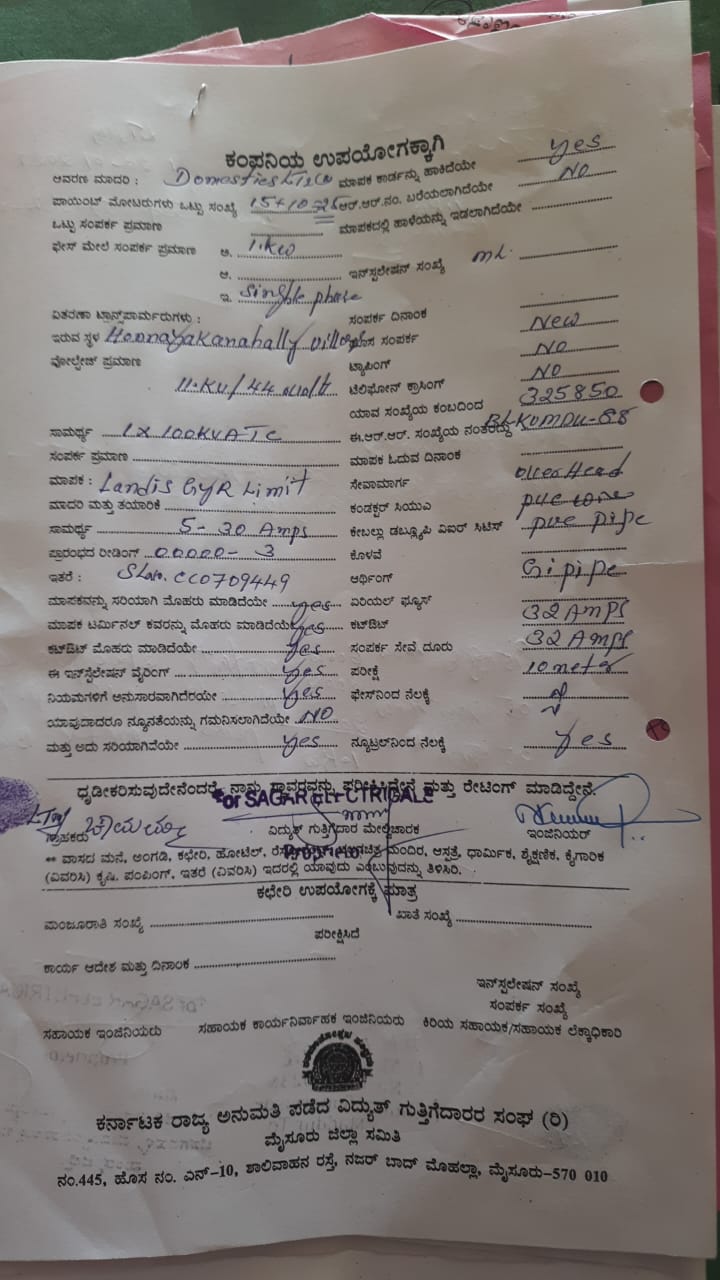 ಕಂಪನಿಯ ಉಪಯೋಗಕ್ಕಾಗಿ
ಆವರಣ ಮಾದರಿ : ಮಾಪಕ ಕಾರ್ಡನ್ನು ಹಾಕಿದೆಯೇ yes
ಪಾಯಿಂಟ್ ಮೋಟರುಗಳು ಒಟ್ಟು ಸಂಖ್ಯೆ ಆರ್.ಆರ್.ನಂ. ಬರೆಯಲಾಗಿದೆಯೇ NO
ಒಟ್ಟು ಸಂಪರ್ಕ ಪ್ರಮಾಣ ಮಾಪಕದಲ್ಲಿ ಹಾಳೆಯನ್ನು ಇಡಲಾಗಿದೆಯೇ
ಫೇಸ್ ಮೇಲೆ ಸಂಪರ್ಕ ಪ್ರಮಾಣ ಅ. 1.KW
ಆ. ಇನ್‌ಸ್ಟಲೇಷನ್ ಸಂಖ್ಯೆ ML.
ಇ. Single phase
ವಿತರಣಾ ಟ್ರಾನ್ಸ್‌ಫಾರ್ಮರುಗಳು : ಸಂಪರ್ಕ ದಿನಾಂಕ
ಇರುವ ಸ್ಥಳ Honnayakanahally village ಹೊಸ ಸಂಪರ್ಕ New
ವೋಲ್ಟೇಜ್ ಪ್ರಮಾಣ ಟ್ಯಾಪಿಂಗ್ NO
11.KV/44 ಟೆಲಿಫೋನ್ ಕ್ರಾಸಿಂಗ್ NO
ಯಾವ ಸಂಖ್ಯೆಯ ಕಂಬದಿಂದ 325850
ಸಾಮರ್ಥ್ಯ 1X 100KVA TC ಈ.ಆರ್.ಆರ್. ಸಂಖ್ಯೆಯ ನಂತರದ್ದು
ಸಂಪರ್ಕ ಪ್ರಮಾಣ ಮಾಪಕ ಓದುವ ದಿನಾಂಕ
ಮಾಪಕ : Landis Gyr Limit ಸೇವಾಮಾರ್ಗ Over Head
ಮಾದರಿ ಮತ್ತು ತಯಾರಿಕೆ ಕಂಡಕ್ಟರ್ ಸಿಯುಎ pvc
ಸಾಮರ್ಥ್ಯ 5-30 Amps ಕೇಬಲ್ಲು ಡಬ್ಲ್ಯೂಪಿ ವಿಐರ್ ಸಿಟಿಸ್ pvc pipe
ಪ್ರಾರಂಭದ ರೀಡಿಂಗ್ 00000-3 ಕೊಳವೆ
ಇತರೆ : Slno. CC0709449 ಅರ್ಥಿಂಗ್ Gi pipe
ಮಾಪಕವನ್ನು ಸರಿಯಾಗಿ ಮೊಹರು ಮಾಡಿದೆಯೇ yes ಏರಿಯಲ್ ಫ್ಯೂಸ್
ಮಾಪಕ ಟರ್ಮಿನಲ್ ಕವರನ್ನು ಮೊಹರು ಮಾಡಿದೆಯೇ yes ಕಟ್‌ಔಟ್ 32 Amps
ಕಟ್‌ಔಟ್ ಮೊಹರು ಮಾಡಿದೆಯೇ yes ಸಂಪರ್ಕ ಸೇವೆ ದೂರು 32 Amps
ಈ ಇನ್‌ಸ್ಟಲೇಷನ್ ವೈರಿಂಗ್ yes ಪರೀಕ್ಷೆ 10 meter
ನಿಯಮಗಳಿಗೆ ಅನುಸಾರವಾಗಿದೆರೆಯೇ yes ಫೇಸ್‌ನಿಂದ ನೆಲಕ್ಕೆ
ಯಾವುದಾದರೂ ನ್ಯೂನತೆಯನ್ನು ಗಮನಿಸಲಾಗಿದೆಯೇ NO
ಮತ್ತು ಅದು ಸರಿಯಾಗಿವೆಯೇ yes ನ್ಯೂಟ್ರಲ್‌ನಿಂದ ನೆಲಕ್ಕೆ yes
ಧೃಡೀಕರಿಸುವುದೇನೆಂದರೆ, ನಾನು ಸ್ಥಾವರವನ್ನು ಪರೀಕ್ಷಿಸಿದ್ದೇನೆ ಮತ್ತು ರೇಟಿಂಗ್ ಮಾಡಿದ್ದೇನೆ.
For SAGAR ELECTRICALS
ಗ್ರಾಹಕರು ವಿದ್ಯುತ್ ಗುತ್ತಿಗೆದಾರ ಮೇಲ್ವಿಚಾರಕ ಇಂಜಿನಿಯರ್
** ವಾಸದ ಮನೆ, ಅಂಗಡಿ, ಕಛೇರಿ, ಹೋಟೆಲ್, ಮಂದಿರ, ಆಸ್ಪತ್ರೆ, ಧಾರ್ಮಿಕ, ಶೈಕ್ಷಣಿಕ, ಕೈಗಾರಿಕ
(ವಿವರಿಸಿ) ಕೃಷಿ. ಪಂಪಿಂಗ್, ಇತರೆ (ವಿವರಿಸಿ) ಇದರಲ್ಲಿ ಯಾವುದು ಎಂಬುವುದನ್ನು ತಿಳಿಸಿರಿ.
ಕಛೇರಿ ಉಪಯೋಗಕ್ಕೆ ಮಾತ್ರ
ಮಂಜೂರಾತಿ ಸಂಖ್ಯೆ ಖಾತೆ ಸಂಖ್ಯೆ
ಪರೀಕ್ಷಿಸಿದೆ
ಕಾರ್ಯ ಆದೇಶ ಮತ್ತು ದಿನಾಂಕ
ಇನ್‌ಸ್ಟಲೇಷನ್ ಸಂಖ್ಯೆ
ಸಂಪರ್ಕ ಸಂಖ್ಯೆ
ಸಹಾಯಕ ಇಂಜಿನಿಯರು ಸಹಾಯಕ ಕಾರ್ಯನಿರ್ವಾಹಕ ಇಂಜಿನಿಯರು ಕಿರಿಯ ಸಹಾಯಕ/ಸಹಾಯಕ ಲೆಕ್ಕಾಧಿಕಾರಿ
ಕರ್ನಾಟಕ ರಾಜ್ಯ ಅನುಮತಿ ಪಡೆದ ವಿದ್ಯುತ್ ಗುತ್ತಿಗೆದಾರರ ಸಂಘ (ರಿ)
ಮೈಸೂರು ಜಿಲ್ಲಾ ಸಮಿತಿ
ನಂ.445, ಹೊಸ ನಂ. ಎನ್-10, ಶಾಲಿವಾಹನ ರಸ್ತೆ, ನಜರ್ ಬಾದ್ ಮೊಹಲ್ಲಾ, ಮೈಸೂರು-570 010